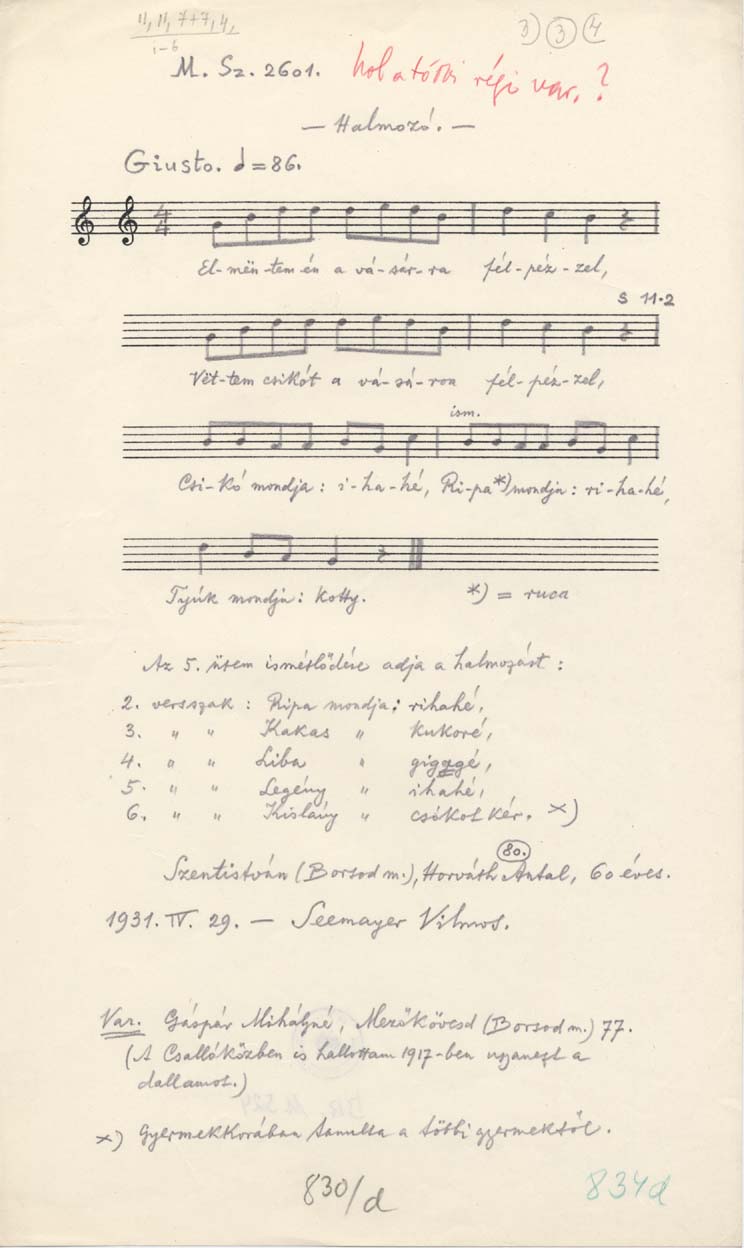 11, 11, 7+7, 4,
1-6
3) 3) 4
M. Sz. 2601.
hol a többi régi var.?
— Halmozó. —
Giusto. = 86.
4/4
El-mën-tem én a vá-sár-ra fél-péz-zel,
S 11.2
Vët-tem csikót a vá-sá-ron fél-péz-zel,
ism.
Csi-kó mondja: i-ha-hé, Ri-pa*) mondja: ri-ha-hé,
Tyúk mondja: Kotty. *) = ruca
Az 5. ütem ismétlődése adja a halmozást:
2. versszak: Ripa mondja: rihahé,
3. " " Kakas " kukoré,
4. " " Liba " gigagé,
5. " " Legény " ihahé,
6. " " Kislány " csókot kér. x)
80.
Szentistván (Borsod m.), Horváth Antal, 60 éves.
1931. IV. 29. — Seemayer Vilmos.
Var. Gáspár Mihályné, Mezőkövesd (Borsod m.) 77.
(A Csallóközben is hallottam 1917-ben ugyanezt a
dallamot.)
x) Gyermekkorában tanulta a többi gyermektől.
830/d
834d